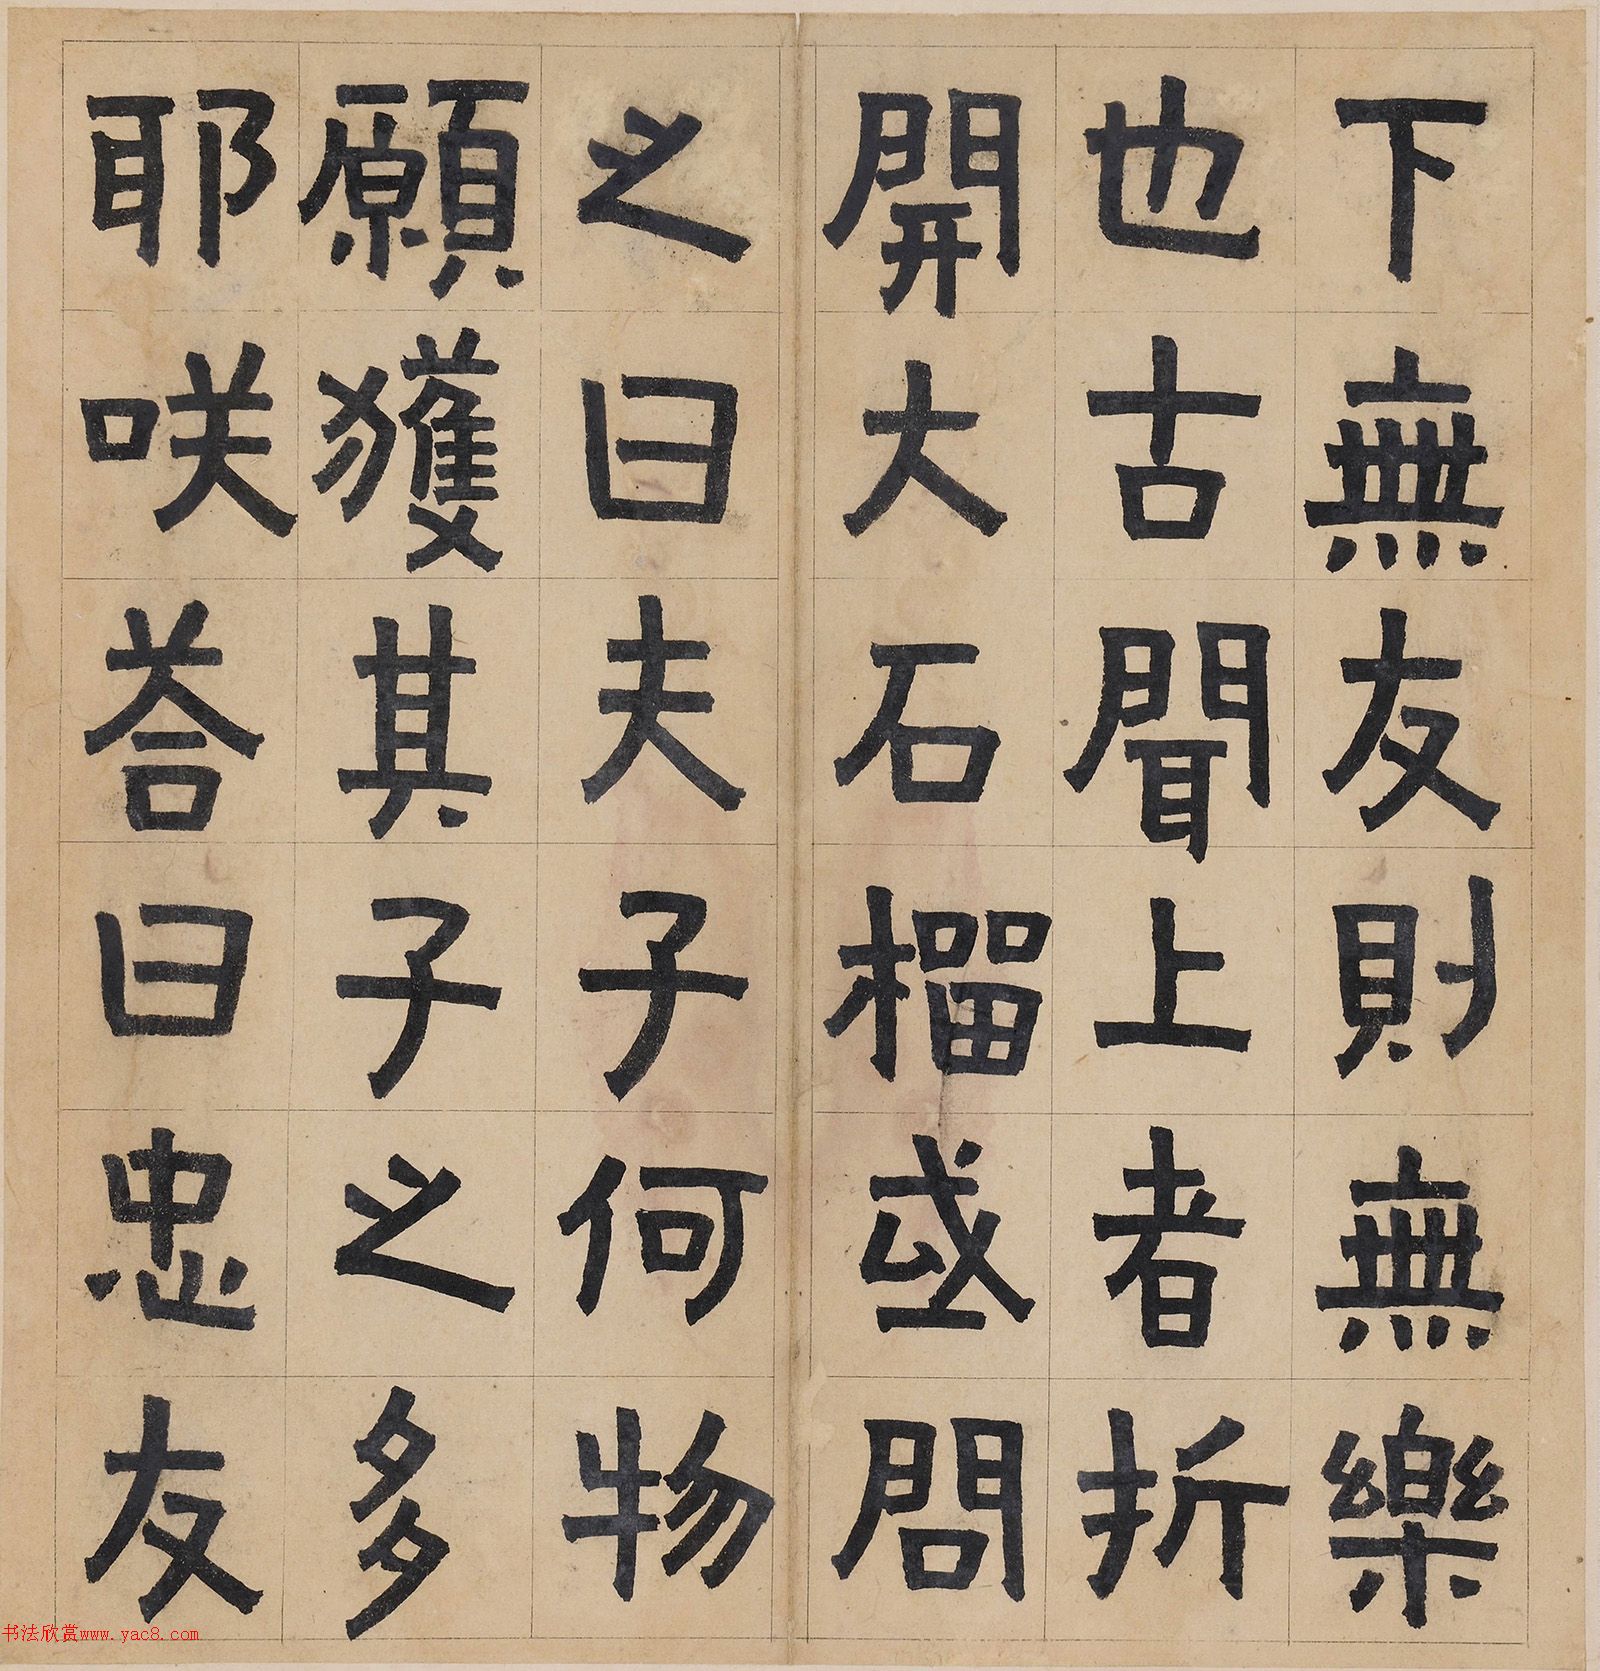 下無友則無樂
也古聞上者折
開大石榴或問
之曰夫子何物
願獲其子之多
耶咲荅曰忠友
书法欣赏www.yac8.com